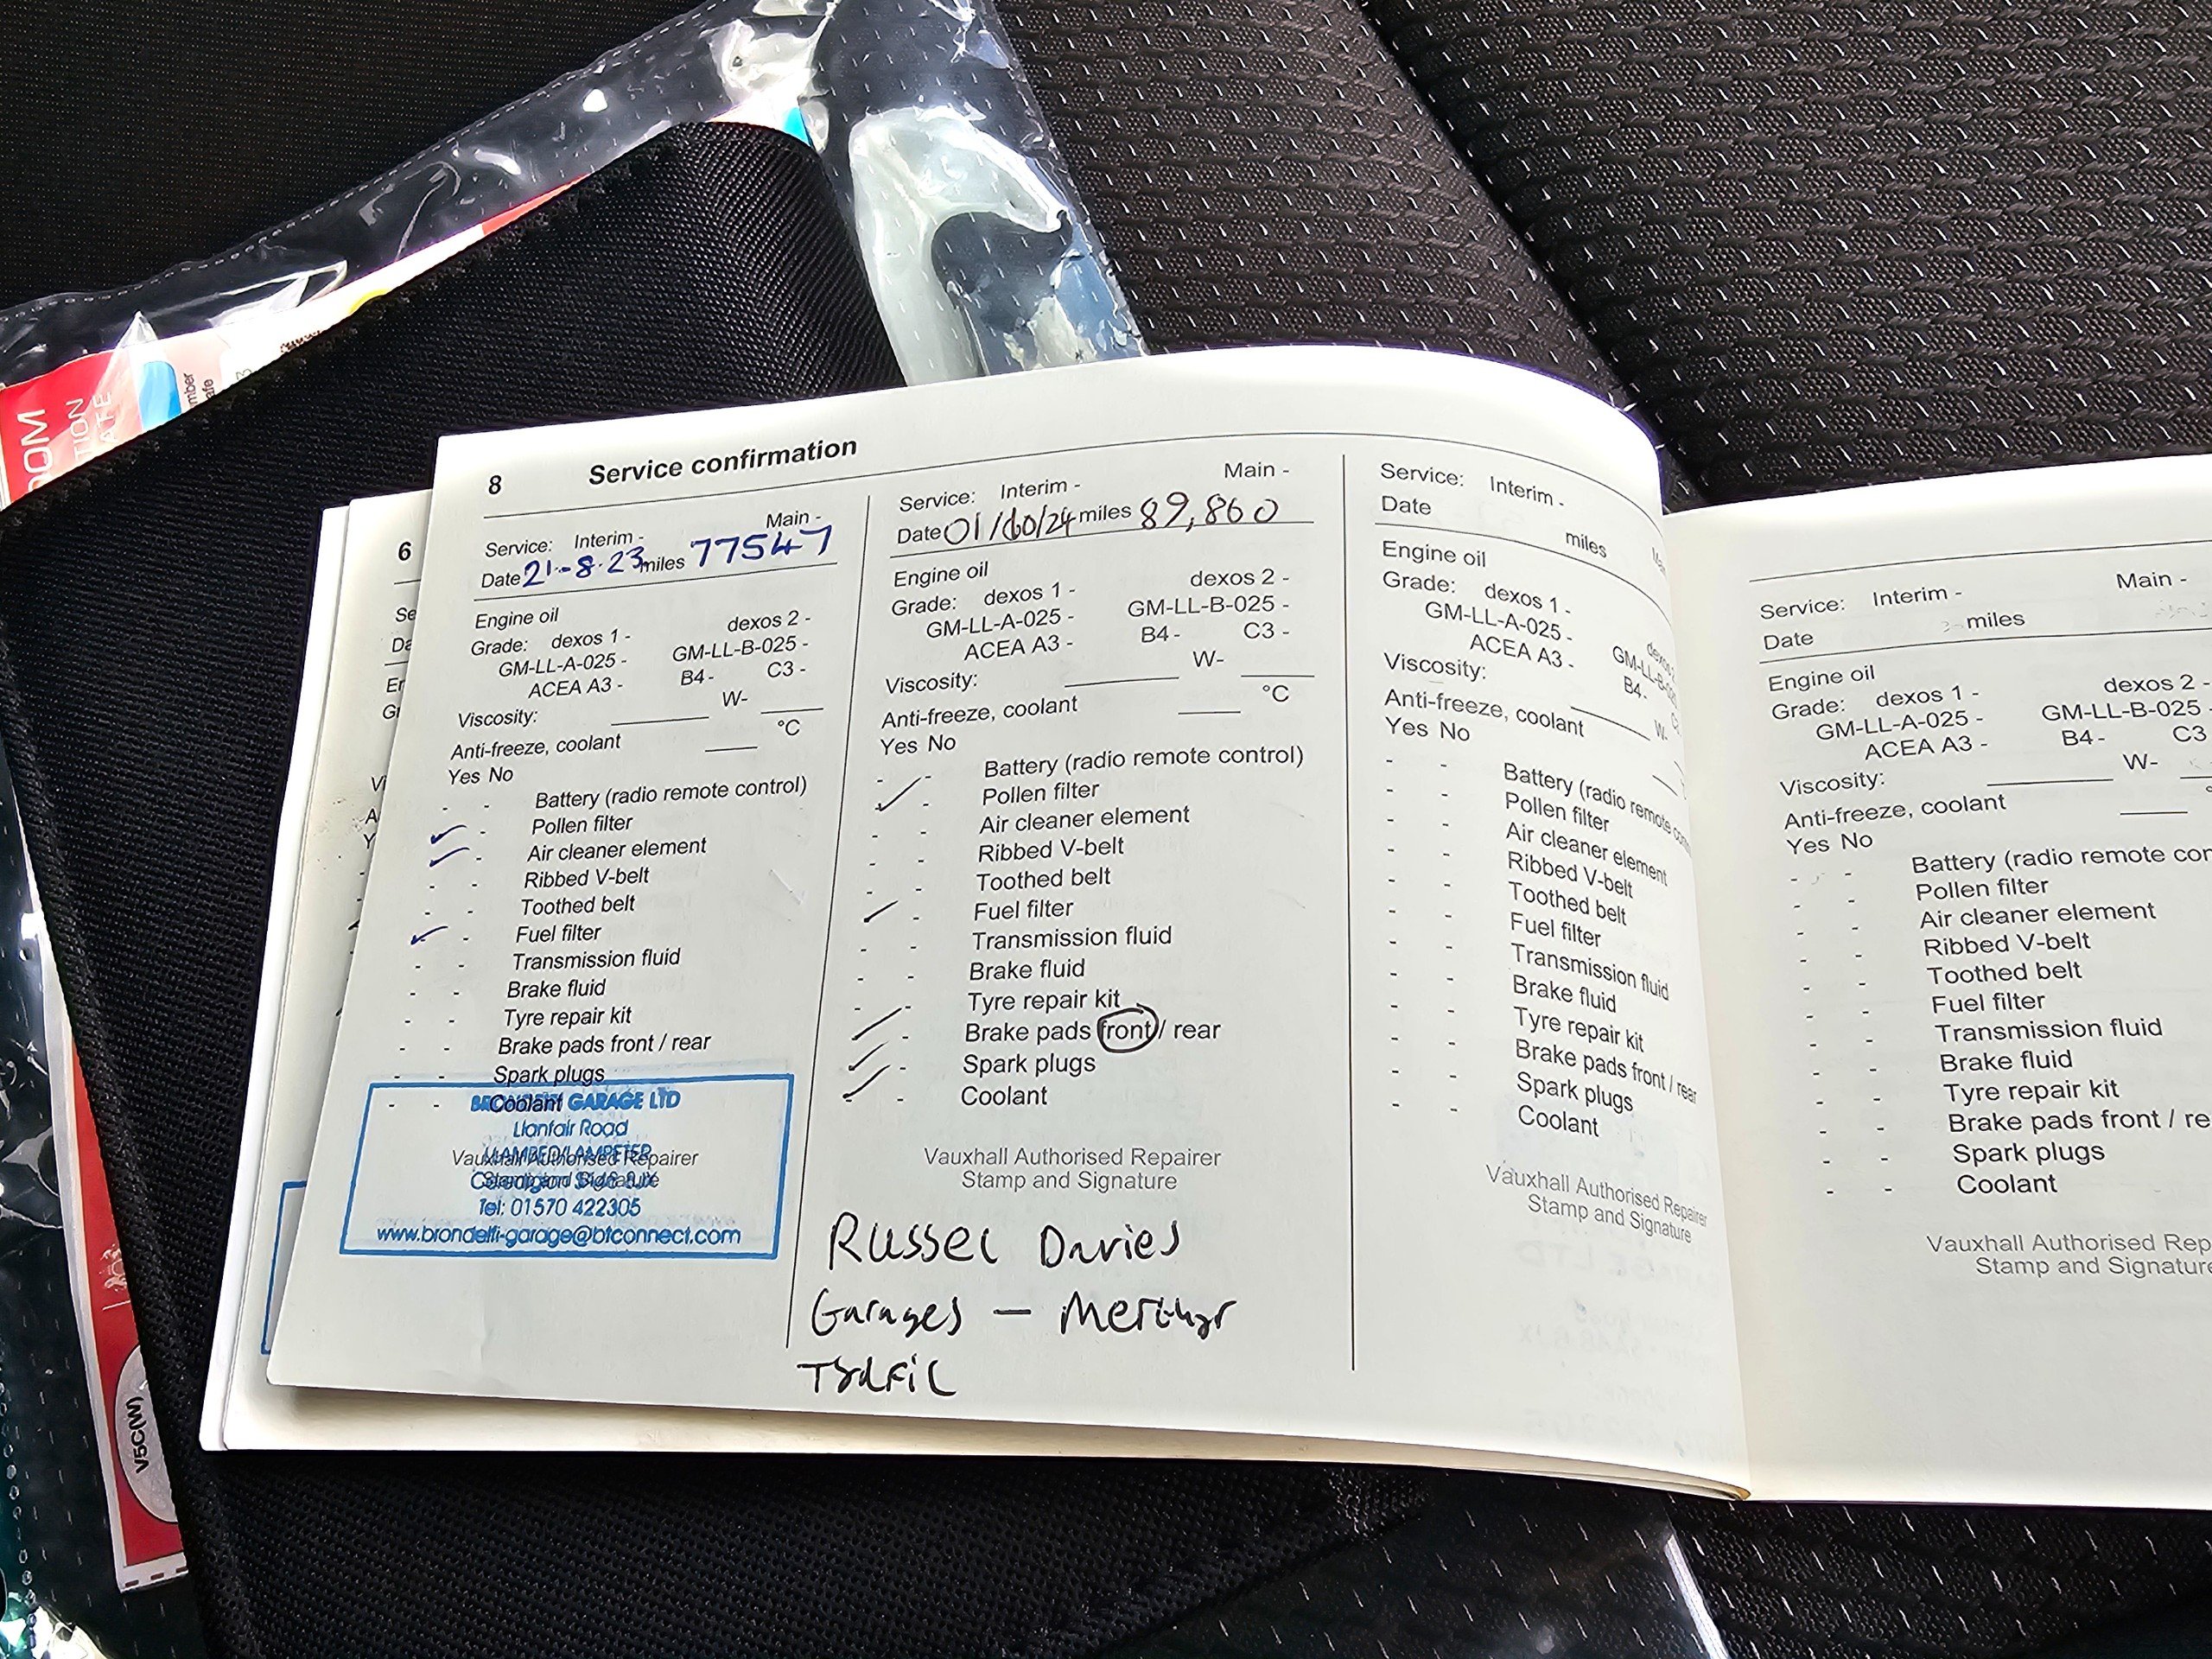 OOM
TION
ATE
mber
afe
V5C(W)
6
Se
Da
Er
Gr
8 Service confirmation
Service: Interim - Main -
Date 21-8-23 miles 77547
Engine oil
Grade: dexos 1 - dexos 2 -
GM-LL-A-025 - GM-LL-B-025 -
ACEA A3 - B4 - C3 -
Viscosity: W-
Anti-freeze, coolant °C
Yes No
- - Battery (radio remote control)
✓ - Pollen filter
✓ - Air cleaner element
- - Ribbed V-belt
- - Toothed belt
✓ - Fuel filter
- - Transmission fluid
- - Brake fluid
- - Tyre repair kit
- - Brake pads front / rear
- - Spark plugs
- - Coolant
GARAGE LTD
Llanfair Road
Vauxhall Authorised Repairer
Tel: 01570 422305
www.brondeifi-garage@btconnect.com
Service: Interim - Main -
Date miles 89,860
Engine oil
Grade: dexos 1 - dexos 2 -
GM-LL-A-025 - GM-LL-B-025 -
ACEA A3 - B4 - C3 -
Viscosity: W-
Anti-freeze, coolant °C
Yes No
- - Battery (radio remote control)
✓ - Pollen filter
- - Air cleaner element
- - Ribbed V-belt
- - Toothed belt
✓ - Fuel filter
- - Transmission fluid
- - Brake fluid
- - Tyre repair kit
✓ - Brake pads front / rear
✓ - Spark plugs
✓ - Coolant
Vauxhall Authorised Repairer
Stamp and Signature
Russel Davies
Garages - Merthyr
Tydfil
Service: Interim -
Date miles
Engine oil
Grade: dexos 1 - dexos
GM-LL-A-025 - GM-LL-B-
ACEA A3 - B4-
Viscosity: W-
Anti-freeze, coolant
Yes No
- - Battery (radio remote
- - Pollen filter
- - Air cleaner element
- - Ribbed V-belt
- - Toothed belt
- - Fuel filter
- - Transmission fluid
- - Brake fluid
- - Tyre repair kit
- - Brake pads front / rear
- - Spark plugs
- - Coolant
Vauxhall Authorised Repairer
Stamp and Signature
Service: Interim - Main -
Date miles
Engine oil
Grade: dexos 1 - dexos 2 -
GM-LL-A-025 - GM-LL-B-025 -
ACEA A3 - B4- C3
Viscosity: W-
Anti-freeze, coolant
Yes No
- - Battery (radio remote cor
- - Pollen filter
- - Air cleaner element
- - Ribbed V-belt
- - Toothed belt
- - Fuel filter
- - Transmission fluid
- - Brake fluid
- - Tyre repair kit
- - Brake pads front / re
- - Spark plugs
- - Coolant
Vauxhall Authorised Rep
Stamp and Signature